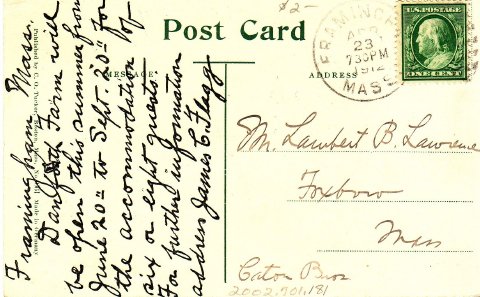 Post Card
$2-
MESSAGE
ADDRESS
FRAMINGHAM
APR
23
730PM
1912
MASS.
U.S. POSTAGE
ONE CENT
Framingham, Mass.
Danforth Farm will
be open this summer from
June 20th to Sept. 20th for
the accommodation of
six or eight guests.
For further information
address James C. Flagg
Mr. Lambert B. Lawrence
Foxboro
Mass
Caton Bros
2002.701.181